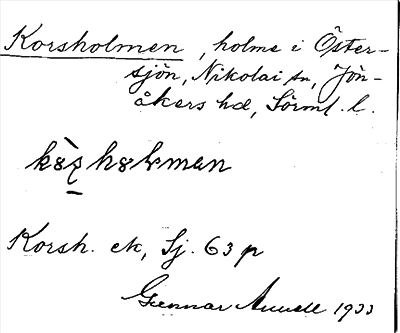 Korsholmen, holme i Öster-
sjön, Nikolai sn, Jön-
åkers hd, Sörml. l.
Korsh. ek, Sj. 63 p
Gunnar 1933